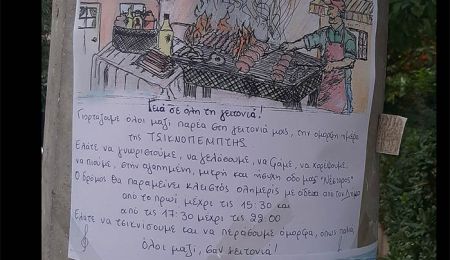 Γειά σε όλη τη γειτονιά!
Γιορτάζουμε όλοι μαζί παρέα στη γειτονιά μας, την όμορφη ημέρα
της ΤΣΙΚΝΟΠΕΜΠΤΗΣ.
Ελάτε να γνωριστούμε, να γελάσουμε, να φάμε, να χορέψουμε,
να πιούμε, στην αγαπημένη, μικρή και ήσυχη οδό μας "Νέστορος"
Ο δρόμος θα παραμείνει κλειστός ολημερίς με άδεια από τον Δήμο
από το πρωί μέχρι τις 15:30 και
από τις 17:30 μέχρι τις 22:00
Ελάτε να τσικνίσουμε και να περάσουμε όμορφα, όπως παλιά,
όλοι μαζί, σαν γειτονιά!